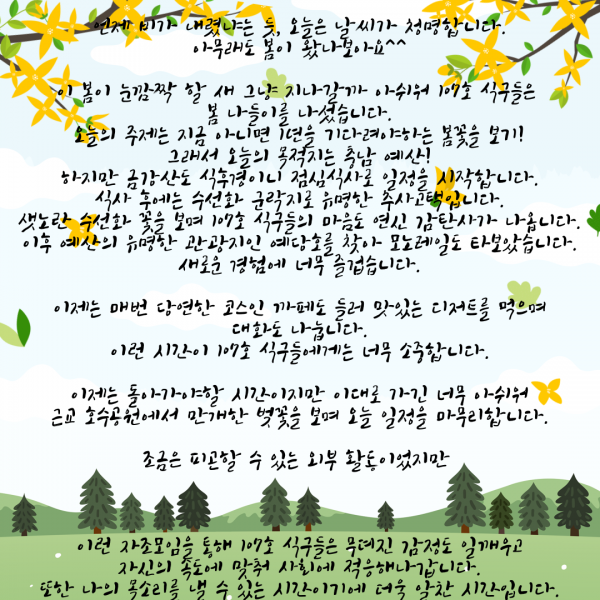 언제 비가 내렸냐는 듯, 오늘은 날씨가 청명합니다.
아무래도 봄이 왔나보아요^^
이 봄이 눈깜짝 할 새 그냥 지나갈까 아쉬워 107호 식구들은
봄 나들이를 나섰습니다.
오늘의 주제는 지금 아니면 1년을 기다려야하는 봄꽃을 보기!
그래서 오늘의 목적지는 충남 예산!
하지만 금강산도 식후경이니 점심식사로 일정을 시작합니다.
식사 후에는 수선화 군락지로 유명한 추사고택입니다.
샛노란 수선화 꽃을 보며 107호 식구들의 마음도 연신 감탄사가 나옵니다.
이후 예산의 유명한 관광지인 예당호를 찾아 모노레일도 타보았습니다.
새로운 경험에 너무 즐겁습니다.
이제는 매번 당연한 코스인 까페도 들러 맛있는 디저트를 먹으며
대화도 나눕니다.
이런 시간이 107호 식구들에게는 너무 소중합니다.
이제는 돌아가야할 시간이지만 이대로 가긴 너무 아쉬워
근교 호수공원에서 만개한 벚꽃을 보며 오늘 일정을 마무리합니다.
조금은 피곤할 수 있는 외부 활동이었지만
이런 자조모임을 통해 107호 식구들은 무뎌진 감정도 일깨우고
자신의 속도에 맞춰 사회에 적응해나갑니다.
또한 나의 목소리를 낼 수 있는 시간이기에 더욱 알찬 시간입니다.